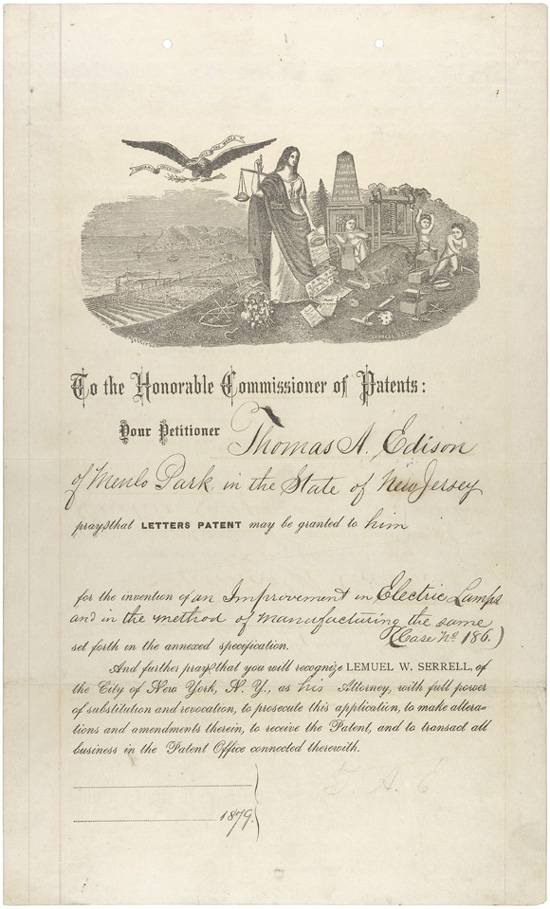 To the Honorable Commissioner of Patents:
Your Petitioner Thomas A. Edison
of Menlo Park in the State of New Jersey
prays that LETTERS PATENT may be granted to him
for the invention of an Improvement in Electric Lamps
and in the method of manufacturing the same
(Case No 186.)
set forth in the annexed specification.
And further prays that you will recognize LEMUEL W. SERRELL, of
the City of New York, N. Y., as his Attorney, with full power
of substitution and revocation, to prosecute this application, to make altera-
tions and amendments therein, to receive the Patent, and to transact all
business in the Patent Office connected therewith.
1879.
T. A. E